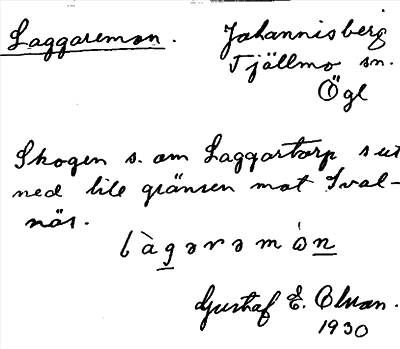 Laggaremon.
Johannisberg
Tjällmo sn.
Ögl
Skogen s. om Laggartorp s ut
ned till gränsen mot Sval-
näs.
làgarəmòn
Gustaf E. Olsson.
1930